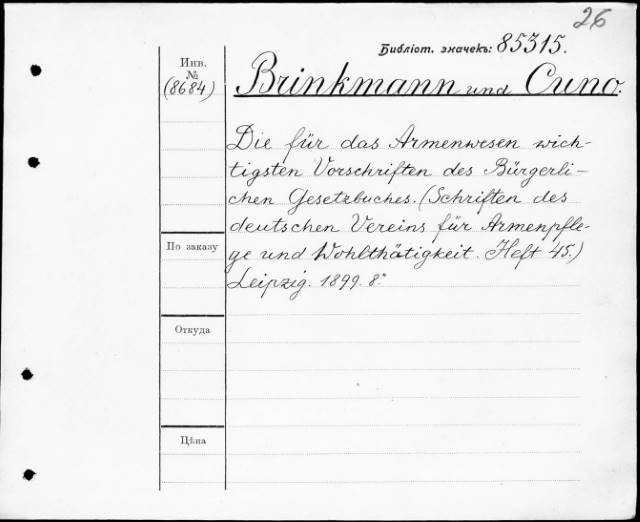 26
Библіот. значекъ: 85315.
Инв.
№
(8684)
Brinkmann und Cuno.
Die für das Armenwesen wich-
tigsten Vorschriften des Bürgerli-
chen Gesetzbuches. (Schriften des
deutschen Vereins für Armenpfle-
ge und Wohlthätigkeit. Heft 45.)
Leipzig. 1899. 8°.
По заказу
Откуда
Цѣна